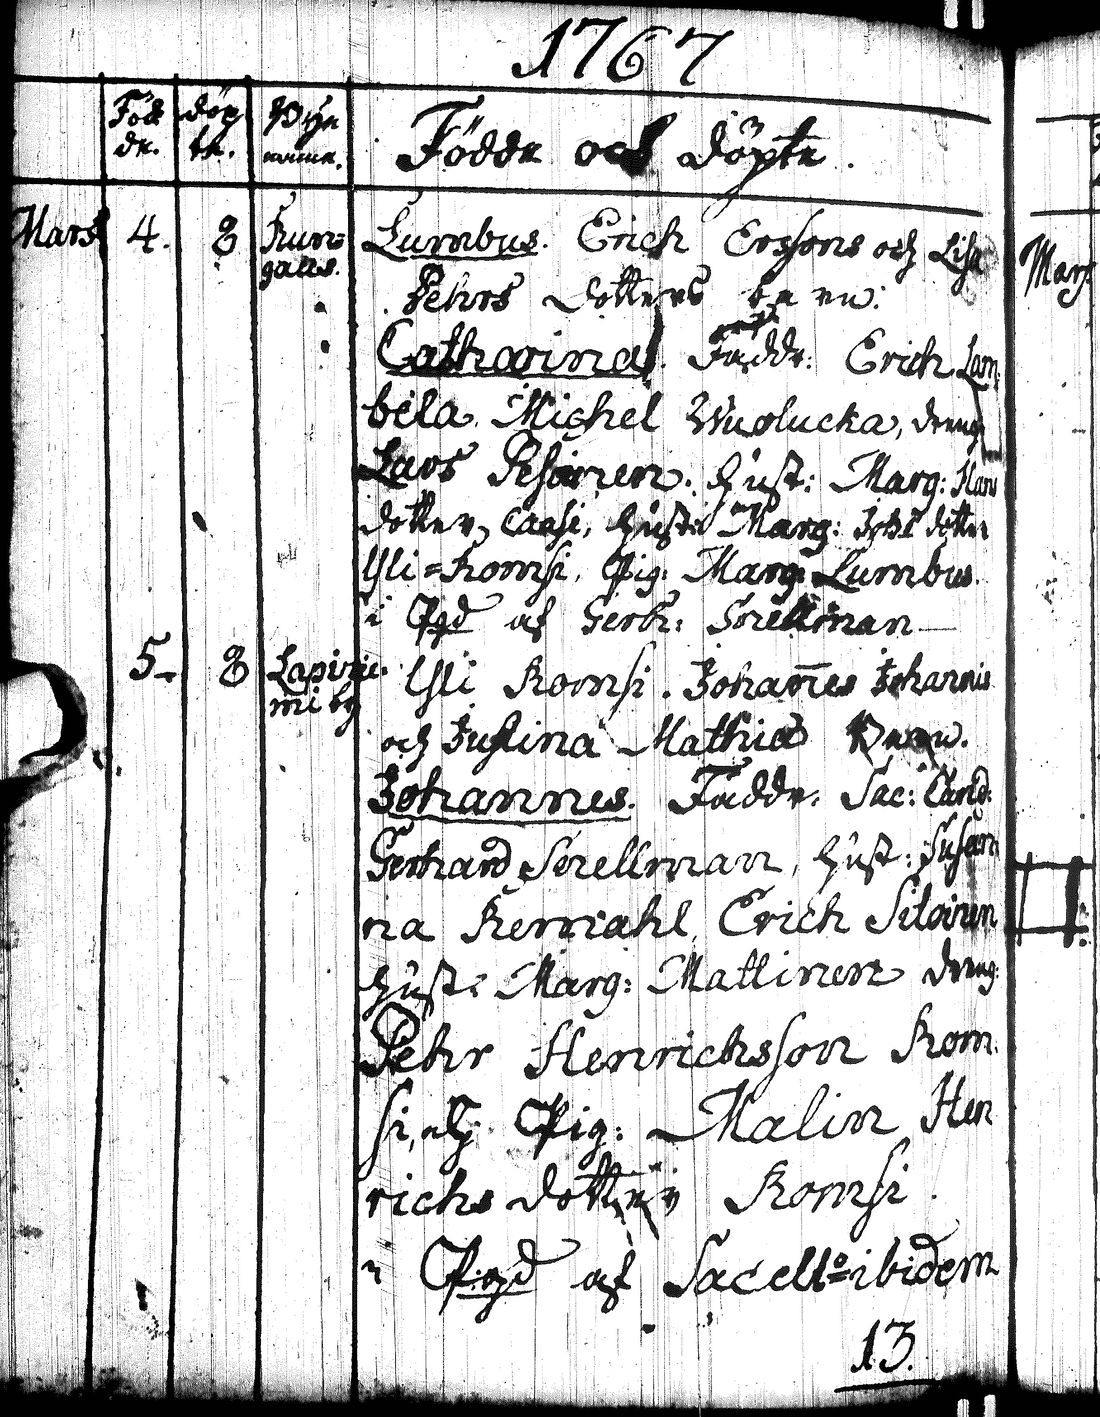 1767
Föd döp Byn
de. te. namn. Födde och döpte.
Mars 4. 8 Kun= Lumbus. Erich Erssons och Lisa
galls. Pehrs dotters barn:
Catharina. Faddr: Erich Lam
bila. Michel Wuolucka, dreng
Lars Pesoinen. Hust: Marg: Hans
dotter, Caasi, Hust: Marg: Joh: dotter
Yli=Komsi, Pig: Marg: Lumbus.
i Pgd af Gerh: Snellman
5. 8 Lapinie= Yli Komsi. Johannes Johannis
mi by och Justina Mathiæ Barn.
Johannes. Faddr. Sac: Cand:
Gerhard Snellman, Hust: Susan
na Keniahl, Erich Siloinen
Hust: Marg: Mattinen dreng:
Pehr Henrichsson Kom
si, och Pig: Malin Hen
richs dotter Komsi.
i Pgd af Sacello ibidem
13.
Mars